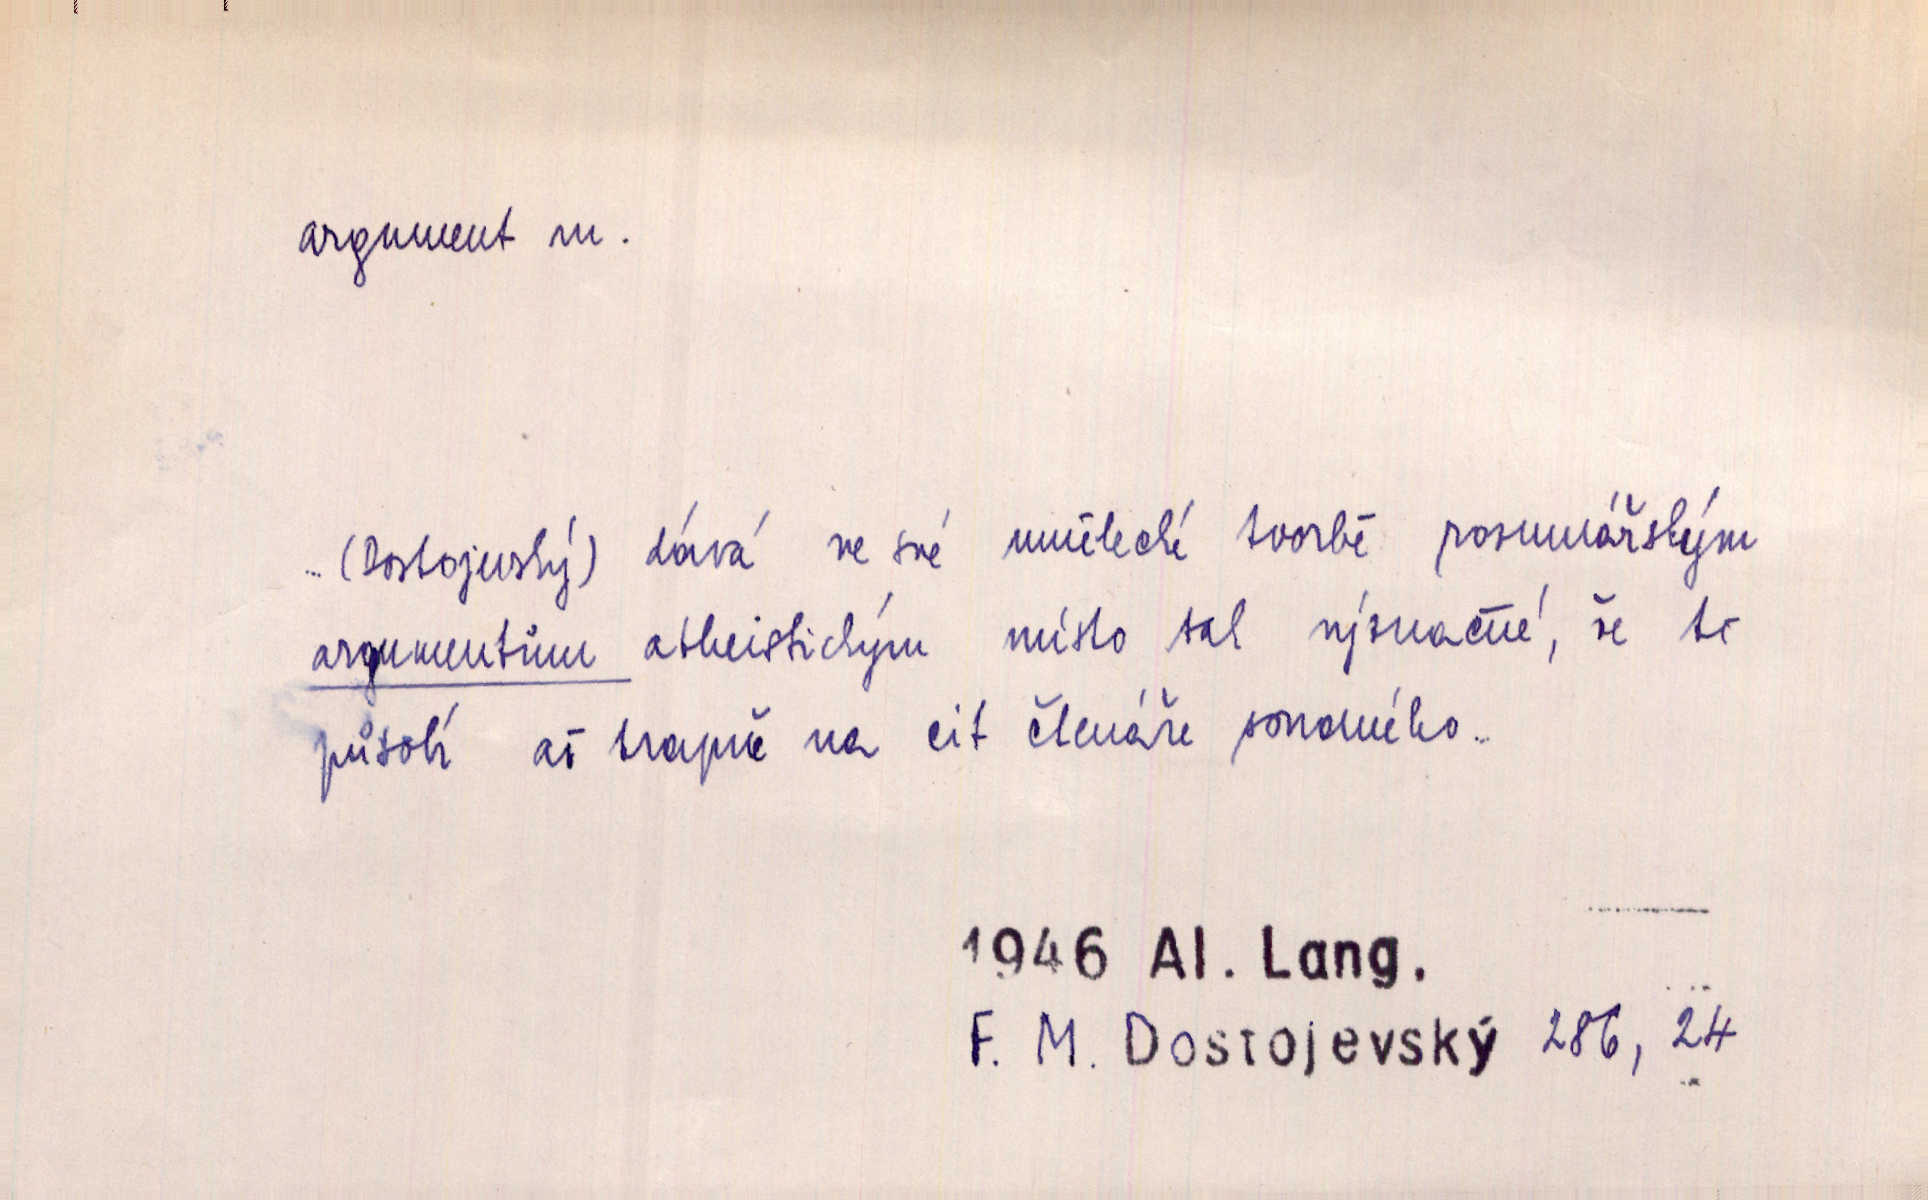 argument m.
.. (Dostojevský) dává ve své umělecké tvorbě rozumářským
argumentům atheistickým místo tak význačné, že to
působí až trapně na cit čtenáře
1946 Al. Lang.
F. M. Dostojevský 286, 24